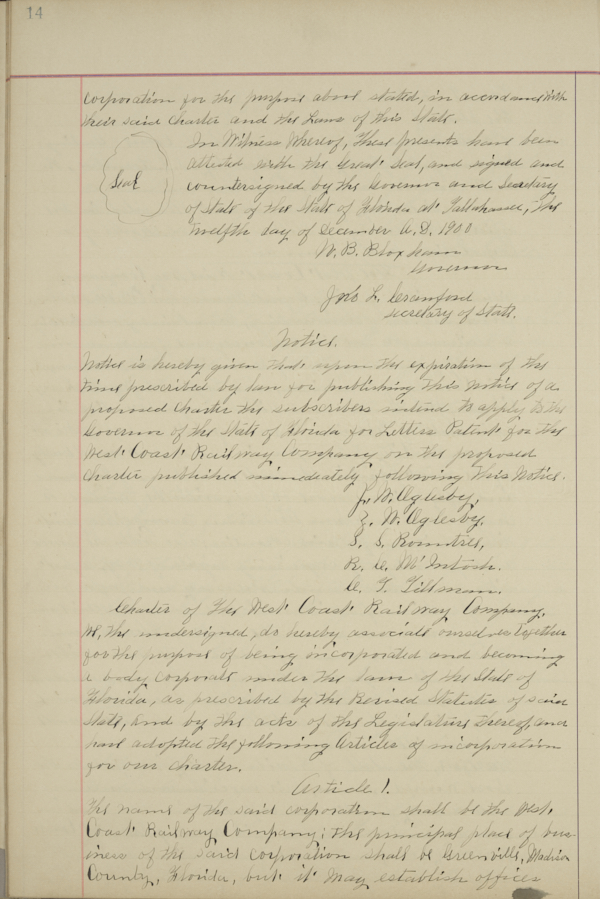 14
corporation for the purpose above stated, in accordance with
their said Charter and the Laws of this State.
In Witness Whereof, these presents have been
attested with the Great Seal, and signed and
Seal
countersigned by the Governor and Secretary
of State of the State of Florida at Tallahassee, the
twelfth day of December A.D. 1900
W. B. Bloxham
Governor
Jno L. Crawford
Secretary of State.
Notice.
Notice is hereby given that upon the expiration of the
time prescribed by law for publishing this notice of a
proposed Charter the subscribers intend to apply to the
Governor of the State of Florida for Letters Patent for the
West Coast Railway Company on the proposed
Charter published immediately following this Notice.
J. W. Oglesby,
Z. W. Oglesby.
S. S. Rountree,
R. C. McIntosh.
C. T. Tillman.
Charter of the West Coast Railway Company,
We, the undersigned, do hereby associate ourselves together
for the purpose of being incorporated and becoming
a body corporate under the law of the State of
Florida, as prescribed by the Revised Statutes of said
State, and by the acts of the Legislature thereof, and
have adopted the following Articles of incorporation
for our charter.
Article 1.
The name of the said corporation shall be the West
Coast Railway Company; the principal place of bus-
iness of the said Corporation shall be Greenville, Madison
County, Florida, but it may establish offices